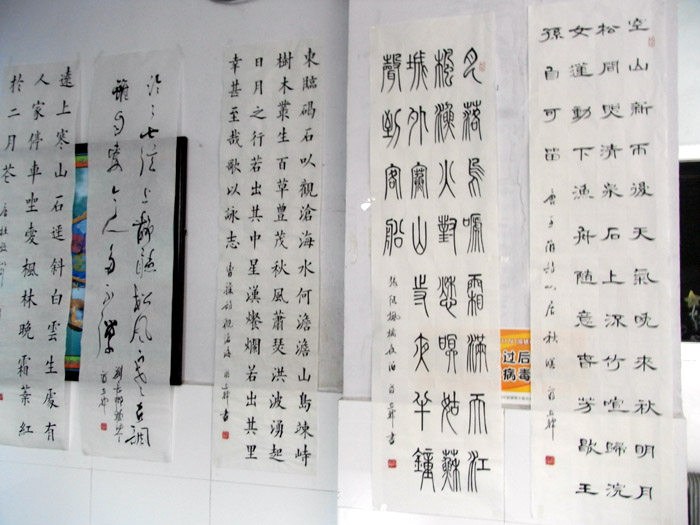 空山新雨後天氣晚來秋明月
松間照清泉石上流竹喧歸浣
女蓮動下漁舟隨意春芳歇王
孫自可留
唐王維詩山居秋暝
过后
病毒
月落烏啼霜滿天江
楓漁火對愁眠姑蘇
城外寒山寺夜半鐘
聲到客船
張繼楓橋夜泊
東臨碣石以觀滄海水何澹澹山島竦峙
樹木叢生百草豐茂秋風蕭瑟洪波湧起
日月之行若出其中星漢燦爛若出其里
幸甚至哉歌以詠志
曹操詩觀滄海
泠泠七弦上靜聽松風寒古調
雖自愛今人多不彈
劉長卿彈琴
遠上寒山石逕斜白雲生處有
人家停車坐愛楓林晚霜葉紅
於二月花
唐杜牧